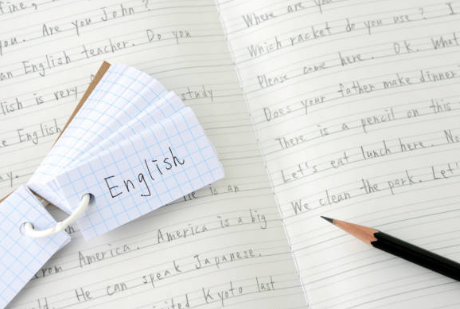 you. Are you John?
an English teacher. Do you
English is very
study
English
to an
from America. America is a big
He can speak Japanese.
visited Kyoto last
Where are you
Which racket do you use? I
Please come here. OK. What
Does your father make dinner
There is a pencil on this
Let's eat lunch here. No
We clean the park. Let's
English